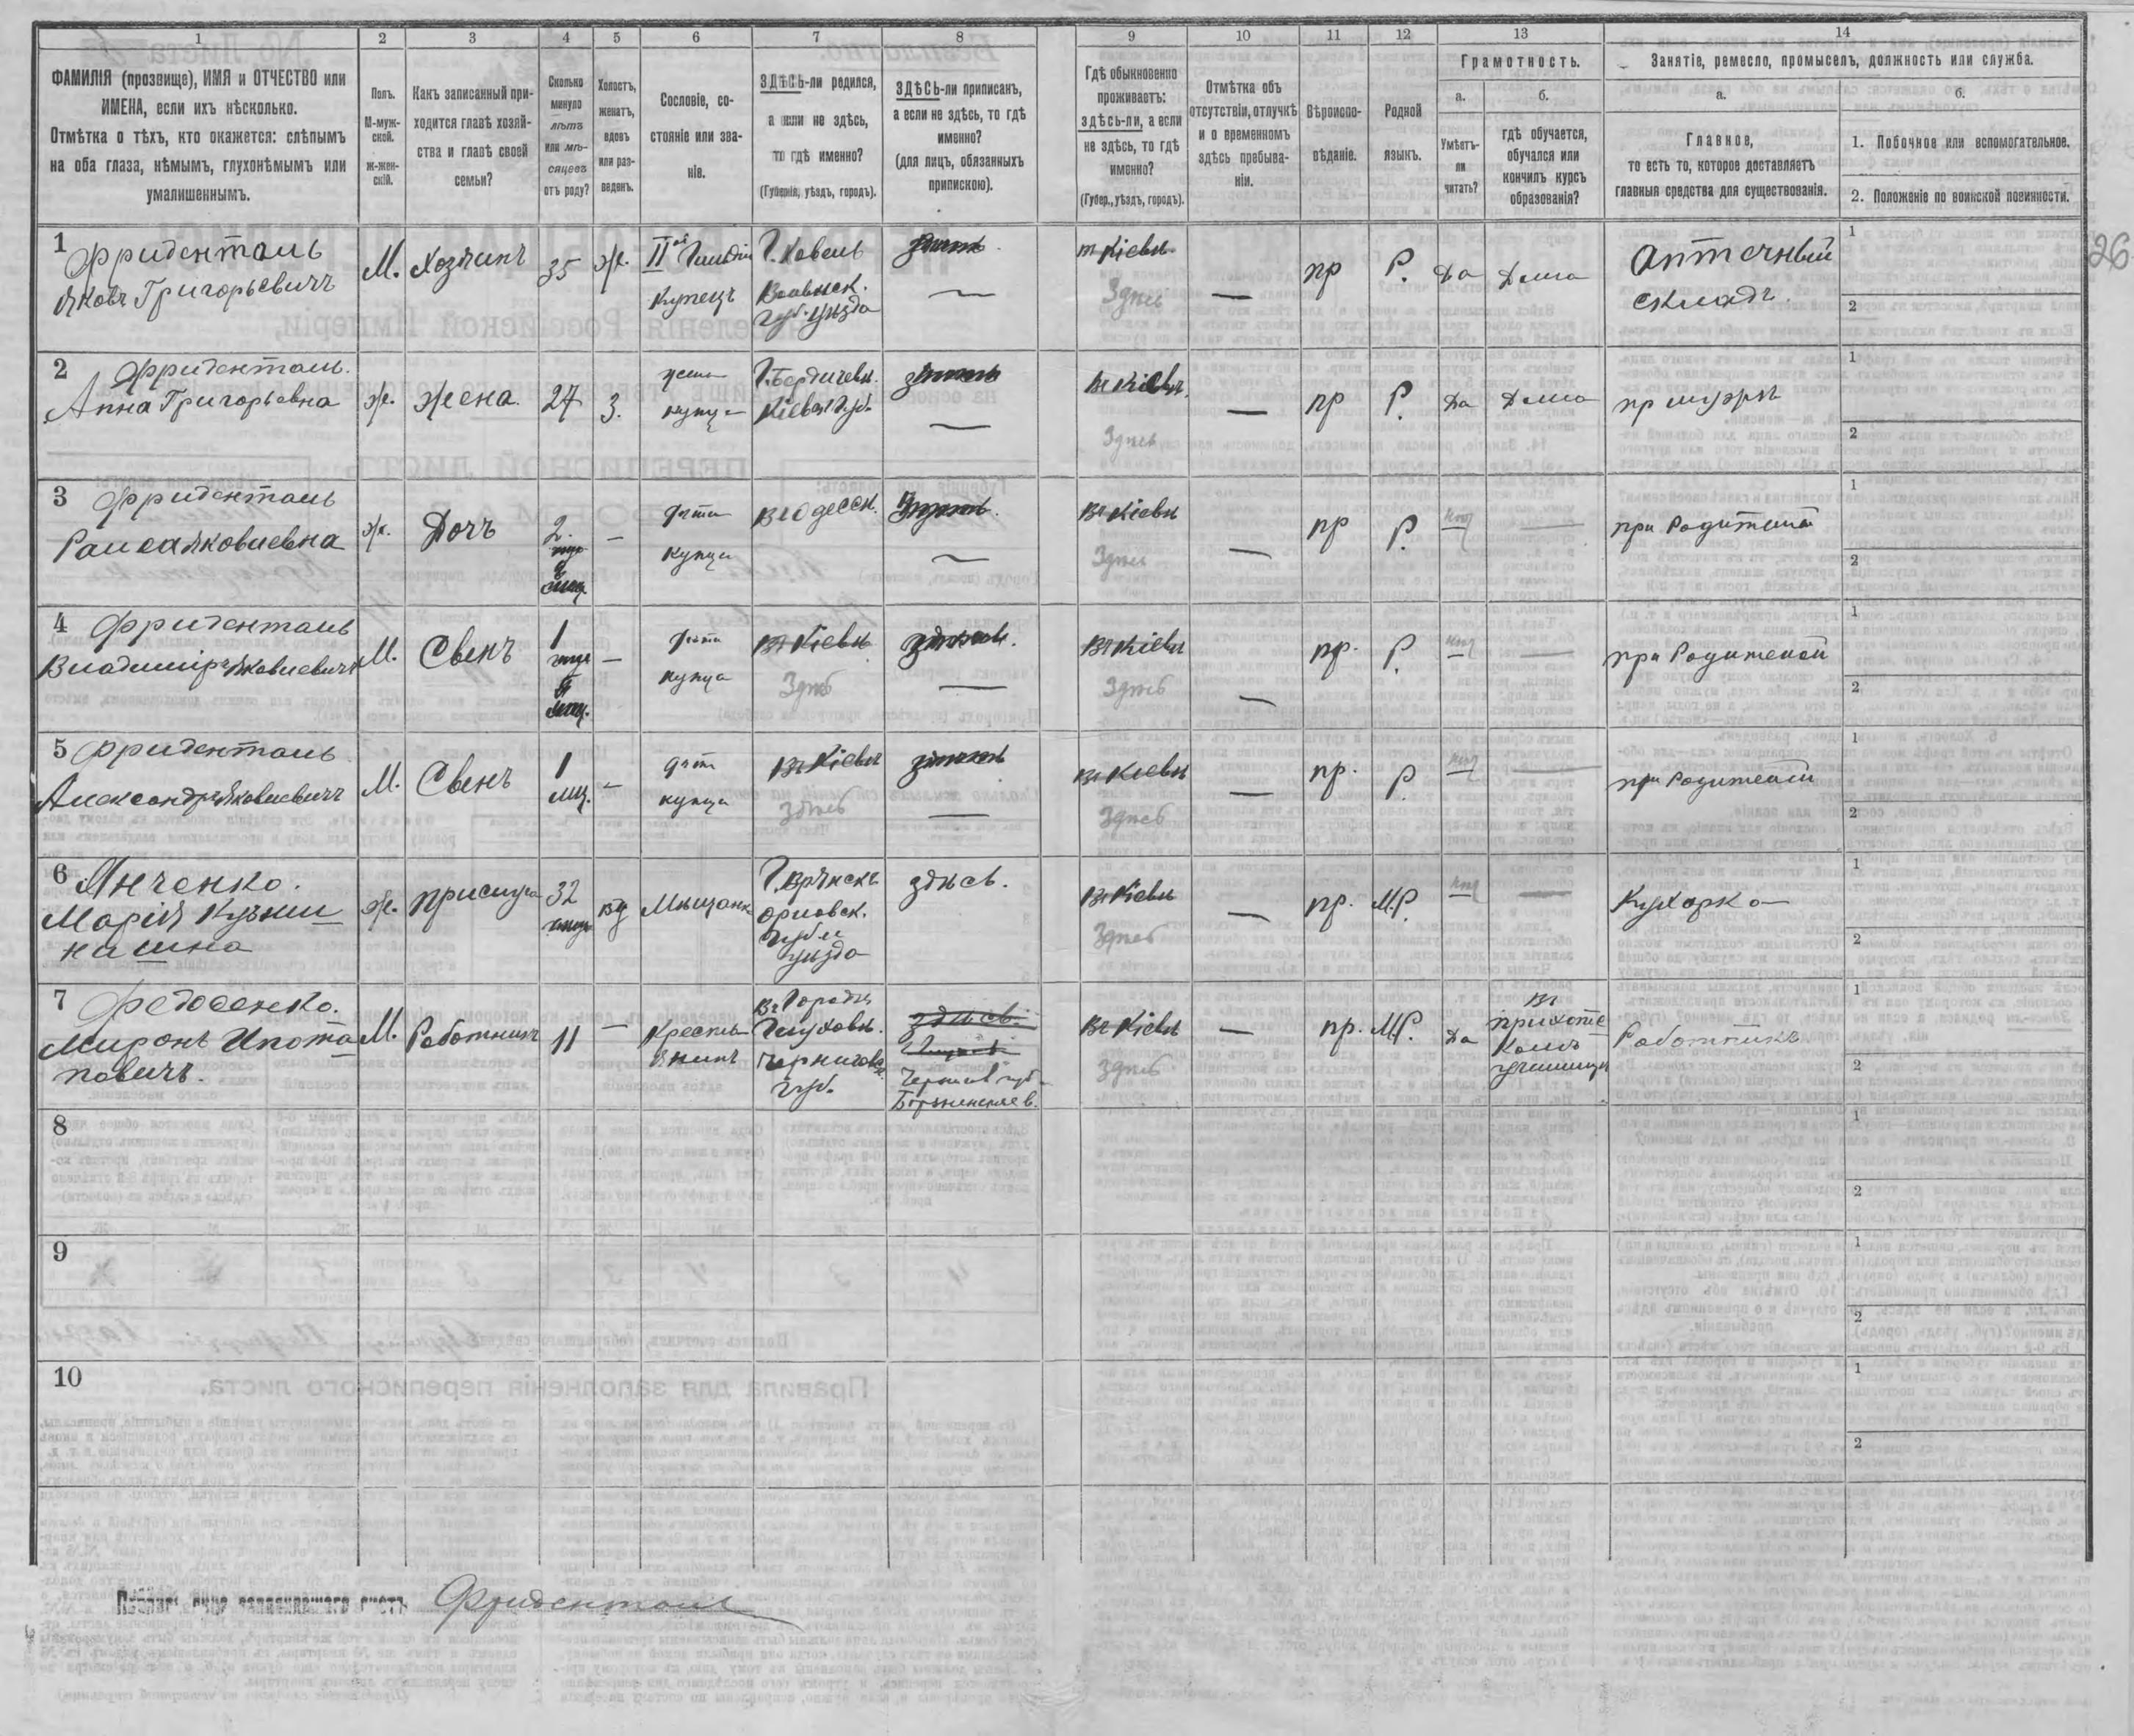 1
2
3
4
5
6
7
8
9
10
11
12
13
14
ФАМИЛІЯ (прозвище), ИМЯ и ОТЧЕСТВО или
ИМЕНА, если ихъ нѣсколько.
Отмѣтка о тѣхъ, кто окажется: слѣпымъ
на оба глаза, нѣмымъ, глухонѣмымъ или
умалишеннымъ.
Полъ.
М-муж-
ской.
Ж-жен-
скій.
Какъ записанный при-
ходится главѣ хозяй-
ства и главѣ своей
семьи?
Сколько
минуло
лѣтъ
или мѣ-
сяцевъ
отъ роду?
Холостъ,
женатъ,
вдовъ
или раз-
веденъ.
Сословіе, со-
стояніе или зва-
ніе.
ЗДѢСЬ-ли родился,
а если не здѣсь,
то гдѣ именно?
(Губернія, уѣздъ, городъ).
ЗДѢСЬ-ли приписанъ,
а если не здѣсь, то гдѣ
именно?
(для лицъ, обязанныхъ
припискою).
Гдѣ обыкновенно
проживаетъ:
здѣсь-ли, а если
не здѣсь, то гдѣ
именно?
(Губер., уѣздъ, городъ).
Отмѣтка объ
отсутствіи, отлучкѣ
и о временномъ
здѣсь пребыва-
ніи.
Вѣроиспо-
вѣданіе.
Родной
языкъ.
Грамотность.
а.
Умѣетъ-
ли
читать?
б.
гдѣ обучается,
обучался или
кончилъ курсъ
образованія?
Занятіе, ремесло, промыселъ, должность или служба.
а.
Главное,
то есть то, которое доставляетъ
главныя средства для существованія.
б.
1. Побочное или вспомогательное.
2. Положеніе по воинской повинности.
26
1 Фриденталь
Яковъ Григорьевичъ
М.
Хозяинъ
35
Ж.
IIой Гильдіи
Купецъ
Г. Ковель
Волынск.
Губ. уѣзда
Кіевъ
Здѣсь
—
пр
Р.
Да
Дома
Аптечный
складъ.
1
2
2 Фриденталь.
Анна Григорьевна
Ж.
Жена.
27
З.
жена
купца
Г. Бердичевъ.
Кіевск Губ.
Въ Кіевѣ
Здѣсь
—
пр
Р.
Да
Дома
при мужѣ
1
2
3 Фриденталь
Раиса Яковлевна
Ж.
Дочь
2.
—
Дѣти
купца
Въ Одесск.
Въ Кіевѣ
Здѣсь
—
пр
Р.
нѣт
—
при Родителѣ
1
2
4 Фриденталь
Владиміръ Яковлевичъ
М.
Свенъ
1
—
дѣти
купца
Въ Кіевѣ
Здѣсь
Въ Кіевѣ
Здѣсь
—
пр.
Р.
нѣт
—
при Родителѣ
1
2
5 Фриденталь.
Александръ Яковлевичъ
М.
Свенъ
1
мѣц.
—
дѣти
купца
Въ Кіевѣ
здѣсь
Въ Кіевѣ
Здѣсь
—
пр.
Р.
нѣт
—
при Родителѣ
1
2
6 Янченко.
Марія Кузьми
нишна
Ж.
прислуга
32
вд
Мѣщанка
Г. Брянскъ
Орловск.
Губ. и
уѣзда
здѣсь.
Въ Кіевѣ
Здѣсь
—
пр.
МР.
нѣт
—
Кухарка
1
2
7 Федосенко.
Миронъ Ипота
повичъ.
М.
Работникъ
11
—
Кресть
янинъ
Въ Городѣ
Глуховъ.
Черниговск.
Губ.
здѣсь.
Чернигов губ
Въ Кіевѣ
Здѣсь
—
пр.
МР.
Да
въ
приходс
комъ
училищѣ
Работникъ
1
2
8
1
2
9
1
2
10
1
2
Фриденталь